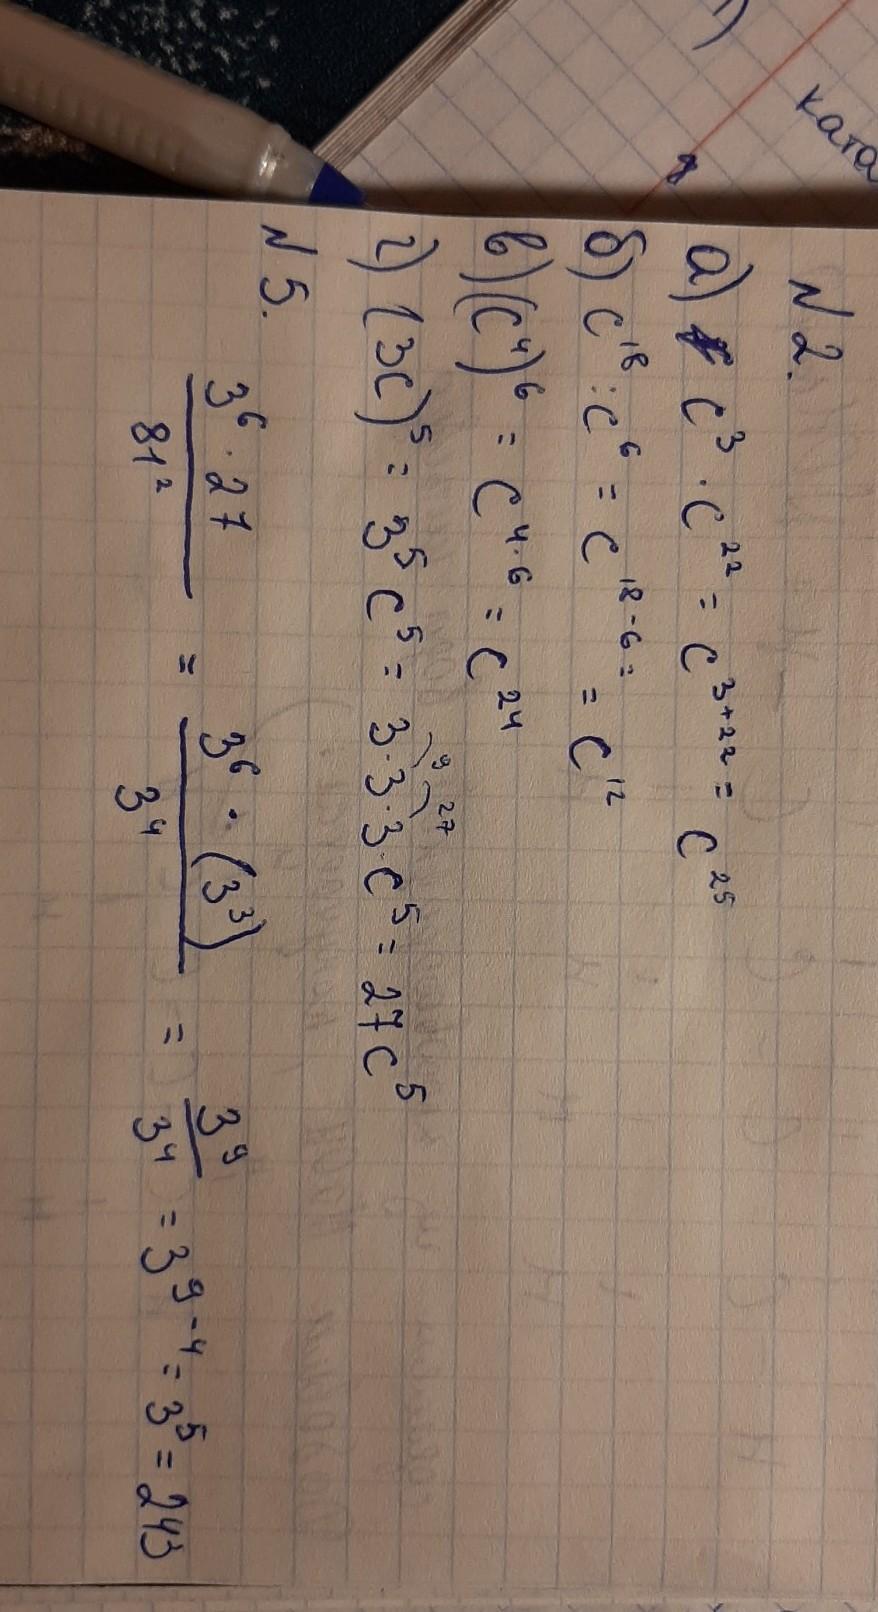 ката
№2.
а) c³ · c²² = c³⁺²² = c²⁵
б) c¹⁸ : c⁶ = c¹⁸⁻⁶ = = c¹²
в) (c⁴)⁶ = c⁴·⁶ = c²⁴
9 27
г) (3c)⁵ = 3⁵c⁵ = 3·3·3·c⁵ = 27c⁵
№5.
3⁶ · 27 / 81² = 3⁶ · (3³) / 3⁴ = 3⁹ / 3⁴ = 3⁹⁻⁴ = 3⁵ = 243